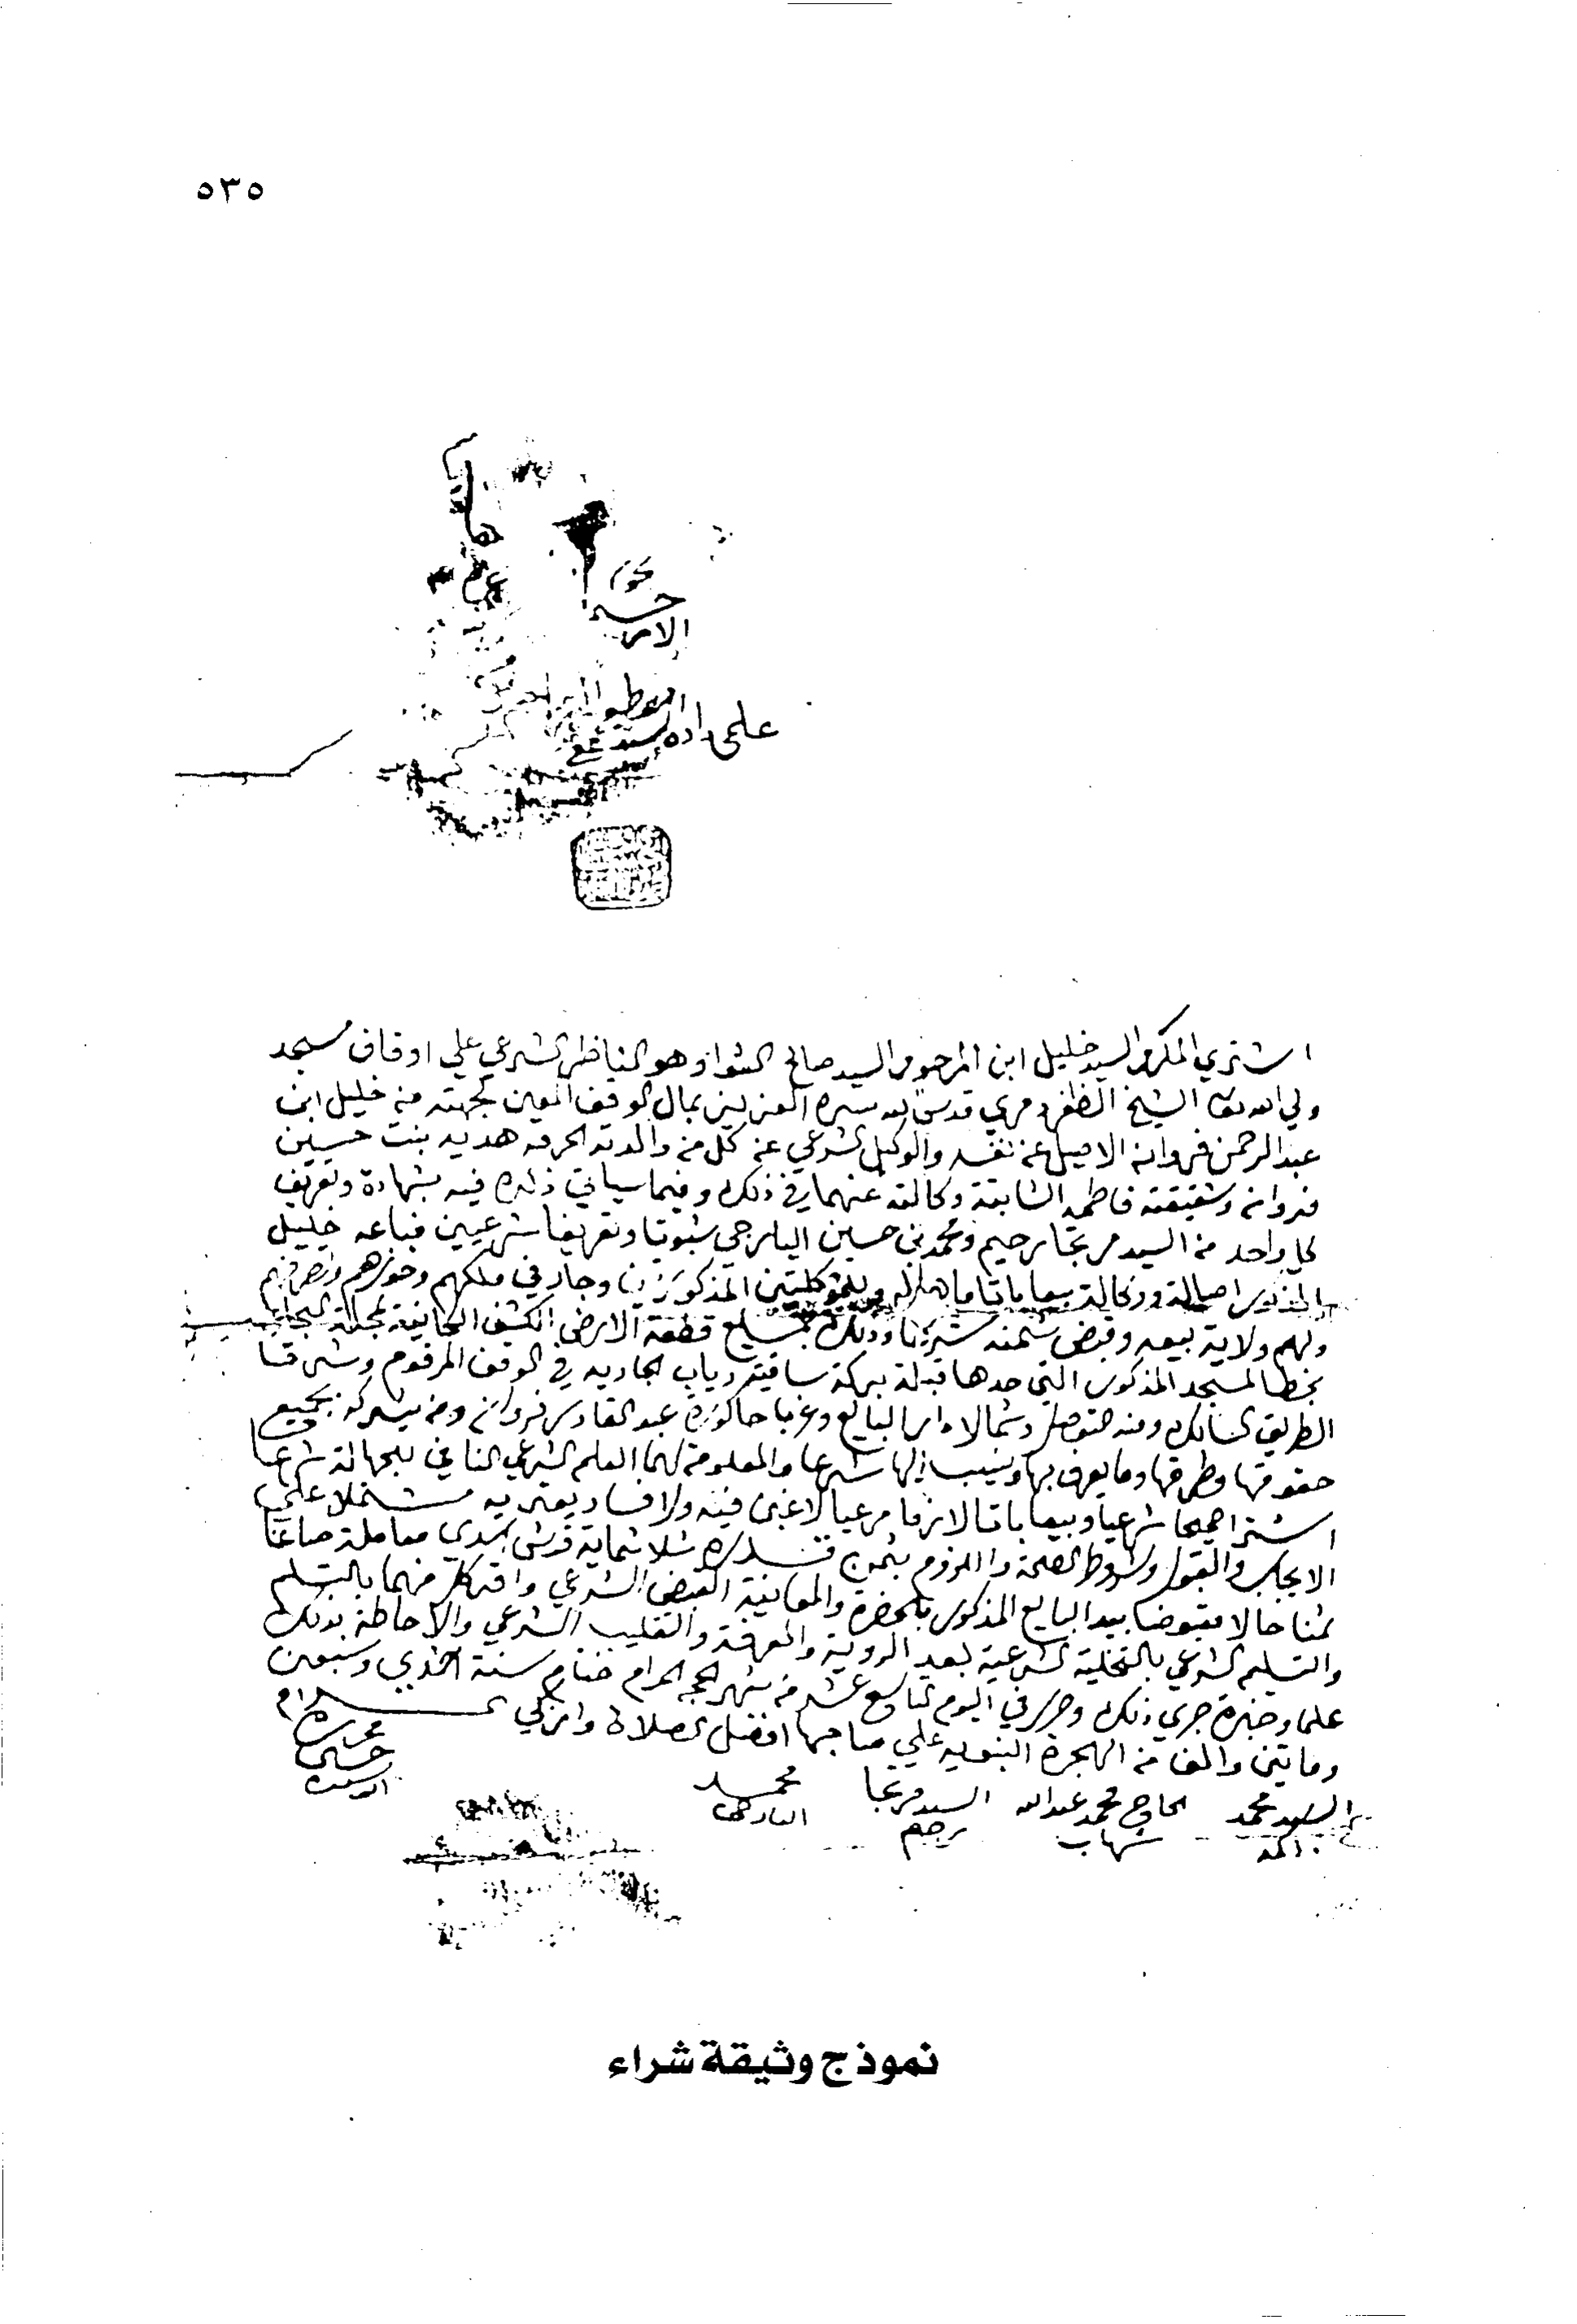 ٥٣٥
الامر
علمي زاده السيد
اشتري المكرم السيد خليل ابن المرحوم السيد صالح الشوا وهو الناظر الشرعي علي اوقاف مسجد
ولي الله تعا الشيخ الظفردمري قدس الله سره العزيز بمال الوقف المعين بجهته من خليل ابن
عبد الرحمن فروانه الاصيل عن نفسه والوكيل الشرعي عن كل من والدته الحرمه هديه بنت حسين
فروانه وشقيقته فاطمه الثابتة وكالته عنهما في ذلك وفيما سياتي ذكره فيه بشهادة وتعريف
كل واحد من السيد مرتجا رحيم ومحمد بن حسين اليازجي ثبوتا وتعريفا شرعيين فباعه خليل
المذكور اصالة ووكالة بيعا باتا ما هو له وللموكلتين المذكورتين وجار في ملكهم وحوزهم وتصرفهم
ولهم ولاية بيعه وقبض ثمنه شرعا وذلك جميع قطعة الارض الكشف الكائنة بمحلة
بخط المسجد المذكور التي حدها قبلة بركة ساقية رياب الجاريه في الوقف المرقوم وشرقا
الطريق السالك ومنه التوصل وشمالا دار البايع وغربا حاكورة عبد القادر فروانه ومن يشركه بجميع
حقوقها وطرقها وما يعرف بها وينسب اليها شرعا والمعلومة لهما العلم الشرعي النافي للجهالة شرعا
اشترا صحيحا شرعيا وبيعا باتا لازما مرعيا لا غبن فيه ولا فساد يعتريه مشتملا علي
الايجاب والقبول وشروط الصحة واللزوم بثمن قدره ثلاثماية قرش اسدي معاملة صاغا
ثمنا حالا مقبوضا بيد البايع المذكور بالحضرة والمعاينة القبض الشرعي واقر كل منهما بالتسلم
والتسليم الشرعي بالتخلية الشرعية بعد الروية والمعرفة والتقليب الشرعي والاحاطة بذلك
علما وخبرة جري ذلك وحرر في اليوم التاسع عشر من شهر الحجه الحرام ختام سنة احدي وسبعين
وماتين والف من الهجرة النبويه علي صاحبها افضل الصلاة وازكي السلام
السيد محمد
الحاج محمد عبد الله
شهاب
السيد مرتجا
رحيم
محمد
اليازجي
محرره
نموذج وثيقة شراء